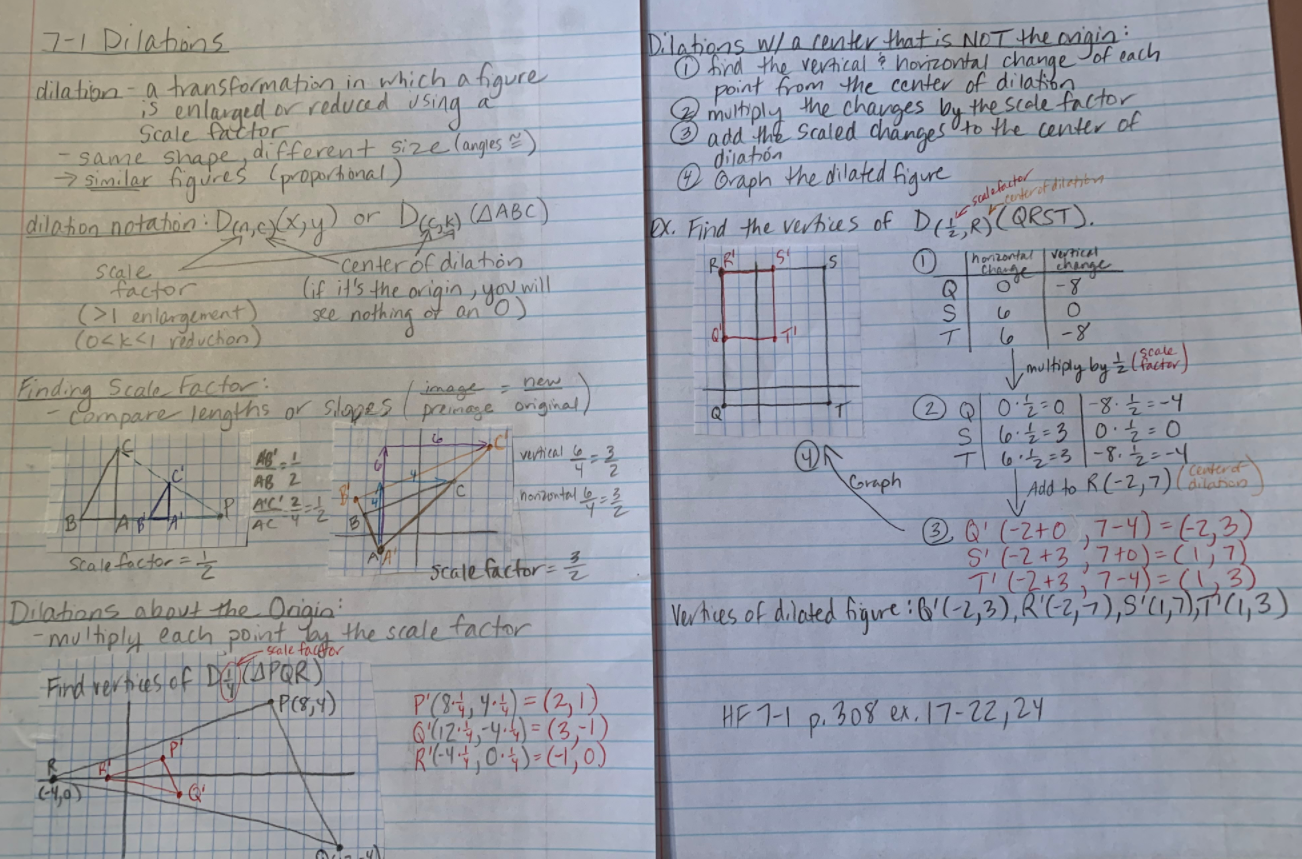 7-1 Dilations
dilation - a transformation in which a figure
is enlarged or reduced using a
scale factor
- same shape, different size (angles ≅)
→ similar figures (proportional)
dilation notation: D(n,c)(x,y) or D(c,k)(△ABC)
scale
factor
(>1 enlargement)
(0<k<1 reduction)
center of dilation
(if it's the origin, you will
see nothing or an O)
Finding Scale Factor:
- Compare lengths or slopes (image/preimage = new/original)
C
C'
B A B' A' P
A'B'/AB = 1/2
A'C'/AC = 2/4 = 1/2
scale factor = 1/2
6
C'
6
4
B'
4
C
B
A A'
vertical 6/4 = 3/2
horizontal 6/4 = 3/2
scale factor = 3/2
Dilations about the Origin:
- multiply each point by the scale factor
scale factor
Find vertices of D 1/4 (△PQR)
P(8,4)
P'
R
R'
(-4,0)
Q'
P'(8·1/4, 4·1/4) = (2,1)
Q'(12·1/4, -4·1/4) = (3,-1)
R'(-4·1/4, 0·1/4) = (-1,0)
Dilations w/ a center that is NOT the origin:
① find the vertical & horizontal change of each
point from the center of dilation
② multiply the changes by the scale factor
③ add the scaled changes to the center of
dilation
④ Graph the dilated figure
scale factor
center of dilation
ex. Find the vertices of D(1/2,R)(QRST).
R R' S' S
Q' T'
Q T
① horizontal change vertical change
Q 0 -8
S 6 0
T 6 -8
multiply by 1/2 (scale factor)
② Q 0·1/2=0 -8·1/2=-4
S 6·1/2=3 0·1/2=0
T 6·1/2=3 -8·1/2=-4
Add to R(-2,7) (center of dilation)
④
Graph
③ Q'(-2+0, 7-4)=(-2,3)
S'(-2+3, 7+0)=(1,7)
T'(-2+3, 7-4)=(1,3)
Vertices of dilated figure: Q'(-2,3), R'(-2,7), S'(1,7), T'(1,3)
HF 7-1 p.308 ex. 17-22, 24